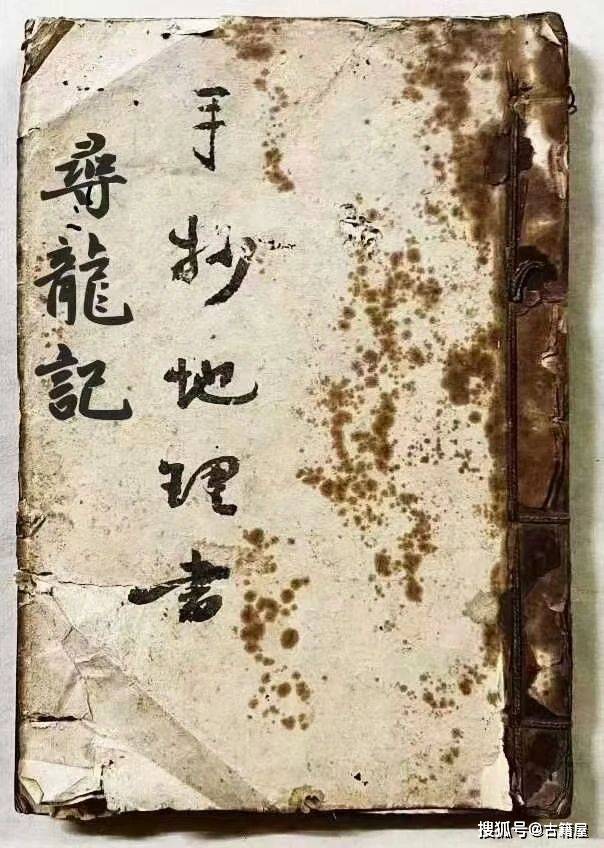 手抄地理書
尋龍記
搜狐号@古籍屋